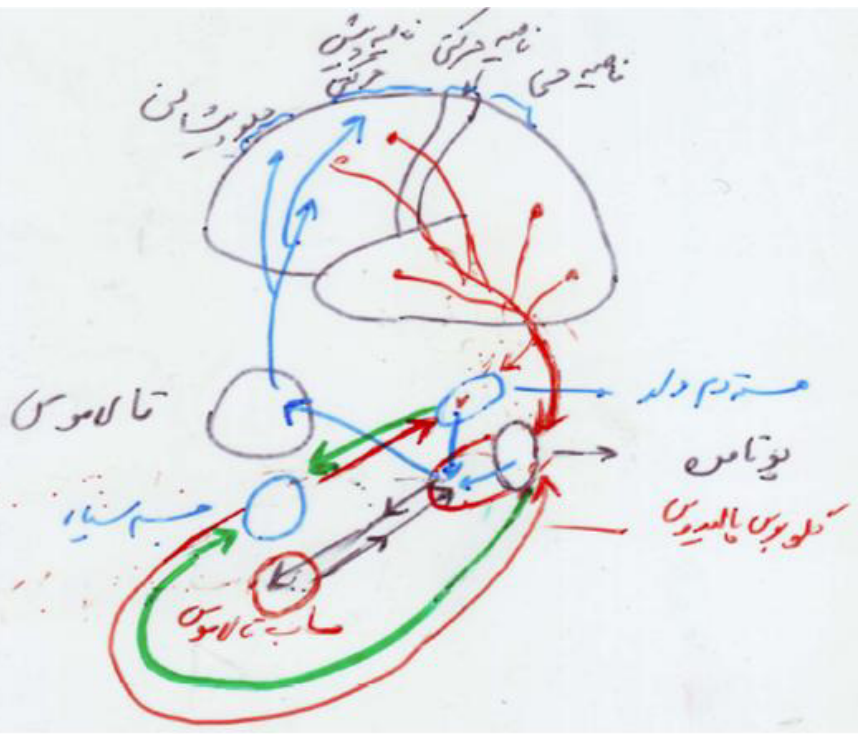 ناحیه پیش
حرکتی
ناحیه حرکتی
ناحیه حسی
جلو پیشانی
تالاموس
هسته دم دار
پوتامن
گلوبوس پالیدوس
جسم سیاه
ساب تالاموس